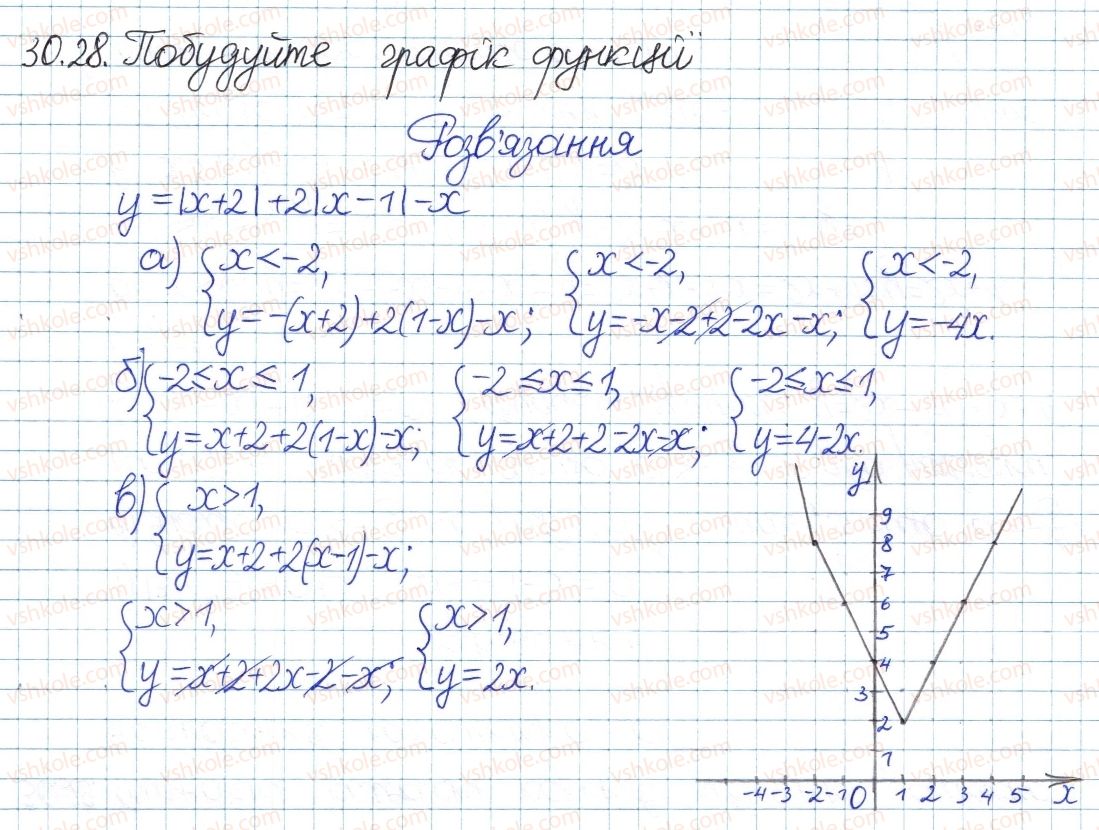 30.28. Побудуйте графік функції
Розв'язання
y = |x+2| + 2|x-1| - x
а) { x < -2, y = -(x+2)+2(1-x)-x; { x < -2, y = -x-2+2-2x-x; { x < -2, y = -4x.
б) { -2 ≤ x ≤ 1, y = x+2+2(1-x)-x; { -2 ≤ x ≤ 1, y = x+2+2-2x-x; { -2 ≤ x ≤ 1, y = 4-2x.
в) { x > 1, y = x+2+2(x-1)-x;
{ x > 1, y = x+2+2x-2-x; { x > 1, y = 2x.
y
9
8
7
6
5
4
3
2
1
-4 -3 -2 -1 0 1 2 3 4 5 x
vshkole.com